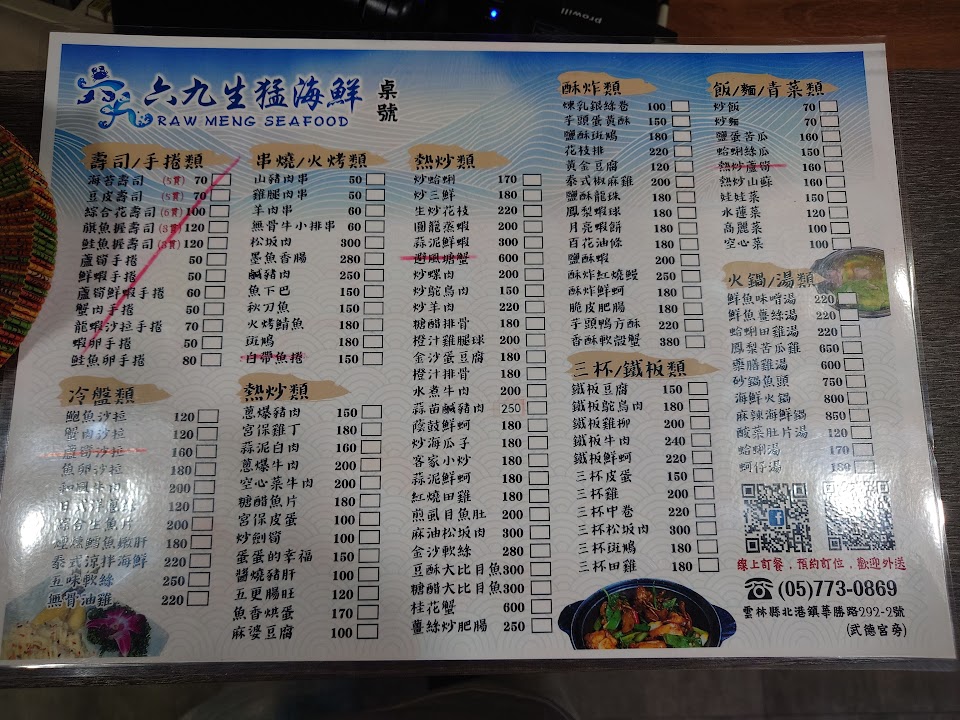 prowill
六九生猛海鮮
RAW MENG SEAFOOD
桌號
壽司/手捲類
海苔壽司 (5貫) 70
豆皮壽司 (5貫) 70
綜合花壽司 (6貫) 100
旗魚握壽司 (3貫) 120
鮭魚握壽司 (3貫) 120
蘆筍手捲 50
鮮蝦手捲 50
蘆筍鮮蝦手捲 60
蟹肉手捲 50
龍蝦沙拉手捲 70
蝦卵手捲 50
鮭魚卵手捲 80
冷盤類
鮑魚沙拉 120
蟹肉沙拉 120
蘆筍沙拉 160
魚卵沙拉 180
和風牛肉 200
日式洋蔥絲 120
綜合生魚片 200
煙燻鱈魚嫩肝 180
泰式涼拌海鮮 220
五味軟絲 250
無骨油雞 220
串燒/火烤類
山豬肉串 50
雞腿肉串 50
羊肉串 60
無骨牛小排串 60
松坂肉 300
墨魚香腸 280
鹹豬肉 250
魚下巴 150
秋刀魚 150
火烤鯖魚 180
斑鳩 180
白帶魚捲 150
熱炒類
蔥爆豬肉 150
宮保雞丁 180
蒜泥白肉 160
蔥爆牛肉 200
空心菜牛肉 200
糖醋魚片 180
宮保皮蛋 100
炒劍筍 100
蛋蛋的幸福 150
醬燒豬肝 180
五更腸旺 120
魚香烘蛋 170
麻婆豆腐 100
熱炒類
炒蛤蜊 170
炒三鮮 180
生炒花枝 220
圍籠蒸蝦 200
蒜泥鮮蝦 300
避風塘蟹 600
炒螺肉 200
炒鴕鳥肉 150
炒羊肉 220
糖醋排骨 180
橙汁雞腿球 200
金沙蛋豆腐 180
橙汁排骨 180
水煮牛肉 200
蒜苗鹹豬肉 250
蔭鼓鮮蚵 180
炒海瓜子 180
客家小炒 180
蒜泥鮮蚵 180
紅燒田雞 180
煎虱目魚肚 200
麻油松坂肉 300
金沙軟絲 280
豆酥大比目魚 300
糖醋大比目魚 300
桂花蟹 600
薑絲炒肥腸 250
酥炸類
煉乳銀絲卷 100
芋頭蛋黃酥 150
鹽酥斑鳩 180
花枝排 220
黃金豆腐 120
泰式椒麻雞 200
鹽酥龍珠 180
鳳梨蝦球 180
月亮蝦餅 180
百花油條 180
鹽酥蝦 200
酥炸紅燒鰻 250
酥炸鮮蚵 180
脆皮肥腸 180
芋頭鴨方酥 220
香酥軟殼蟹 380
三杯/鐵板類
鐵板豆腐 150
鐵板鴕鳥肉 180
鐵板雞柳 200
鐵板牛肉 240
鐵板鮮蚵 220
三杯皮蛋 150
三杯雞 200
三杯中卷 220
三杯松坂肉 300
三杯斑鳩 180
三杯田雞 180
飯/麵/青菜類
炒飯 70
炒麵 70
鹽蛋苦瓜 160
蛤蜊絲瓜 150
熱炒蘆筍 160
熱炒山蘇 160
娃娃菜 150
水蓮菜 120
高麗菜 100
空心菜 100
火鍋/湯類
鮮魚味噌湯 220
鮮魚薑絲湯 220
蛤蜊田雞湯 220
鳳梨苦瓜雞 650
藥膳雞湯 600
砂鍋魚頭 750
海鮮火鍋 800
麻辣海鮮鍋 850
酸菜肚片湯 120
蛤蜊湯 170
蚵仔湯 180
線上訂餐，預約訂位，歡迎外送
(05)773-0869
雲林縣北港鎮華勝路292-2號
(武德宮旁)